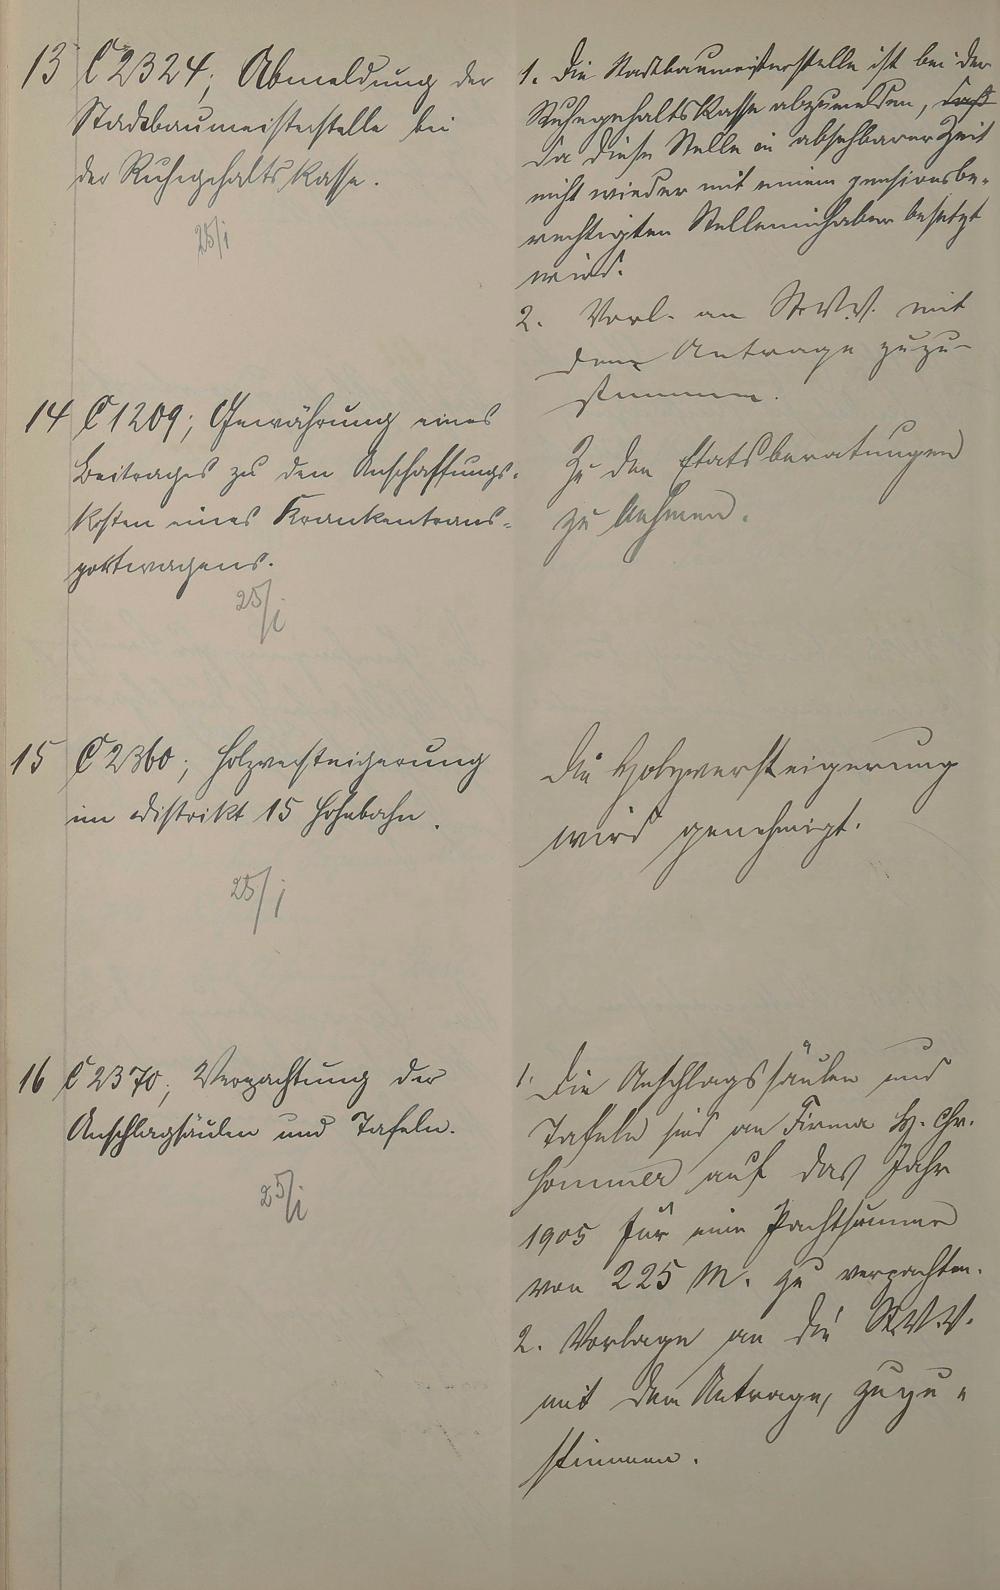 13 C 2324; Abmeldung der
Stadtbaumeisterstelle bei
der Ruhegehaltskasse.
25/i
1. Die Stadtbaumeisterstelle ist bei der
Ruhegehaltskasse abzumelden, daß
da diese Stelle in absehbarer Zeit
nicht wieder mit einem pensionsbe-
rechtigten Stelleninhaber besetzt
wird.
2. Vorl. an St.V.V. mit
dem Antrage zuzu-
stimmen.
14 C 1209; Gewährung eines
Beitrages zu den Anschaffungs-
kosten eines Krankentrans-
portwagens.
25/i
Zu den Etatsberatungen
zu nehmen.
15 C 2360; Holzversteigerung
im Distrikt 15 Hohebahn.
25/i
Die Holzversteigerung
wird genehmigt.
16 C 2370; Verpachtung der
Anschlagsäulen und Tafeln.
25/i
1. Die Anschlagssäulen und
Tafeln sind an Firma H. Chr.
Sommer auf das Jahr
1905 für eine Pachtsumme
von 225 M. zu verpachten.
2. Vorlage an die St.V.V.
mit dem Antrage, zuzu-
stimmen.